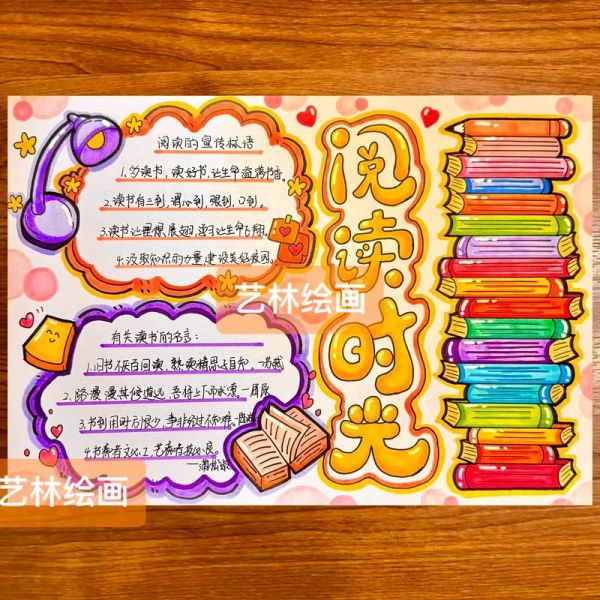 艺林绘画
阅读的宣传标语
1.多读书,读好书,让生命溢满书香。
2.读书有三到,谓心到,眼到,口到。
3.读书让理想展翅,学习让生命飞翔。
4.汲取知识的力量,建设美好校园。
阅读时光
艺林绘画
有关读书的名言:
1.旧书不厌百回读,熟读精思子自知,—苏轼
2.路漫漫其修远兮,吾将上下而求索,—屈原
3.书到用时方恨少,事非经过不知难。
4.书痴者文必工,艺痴者技必良。
—蒲松龄
艺林绘画